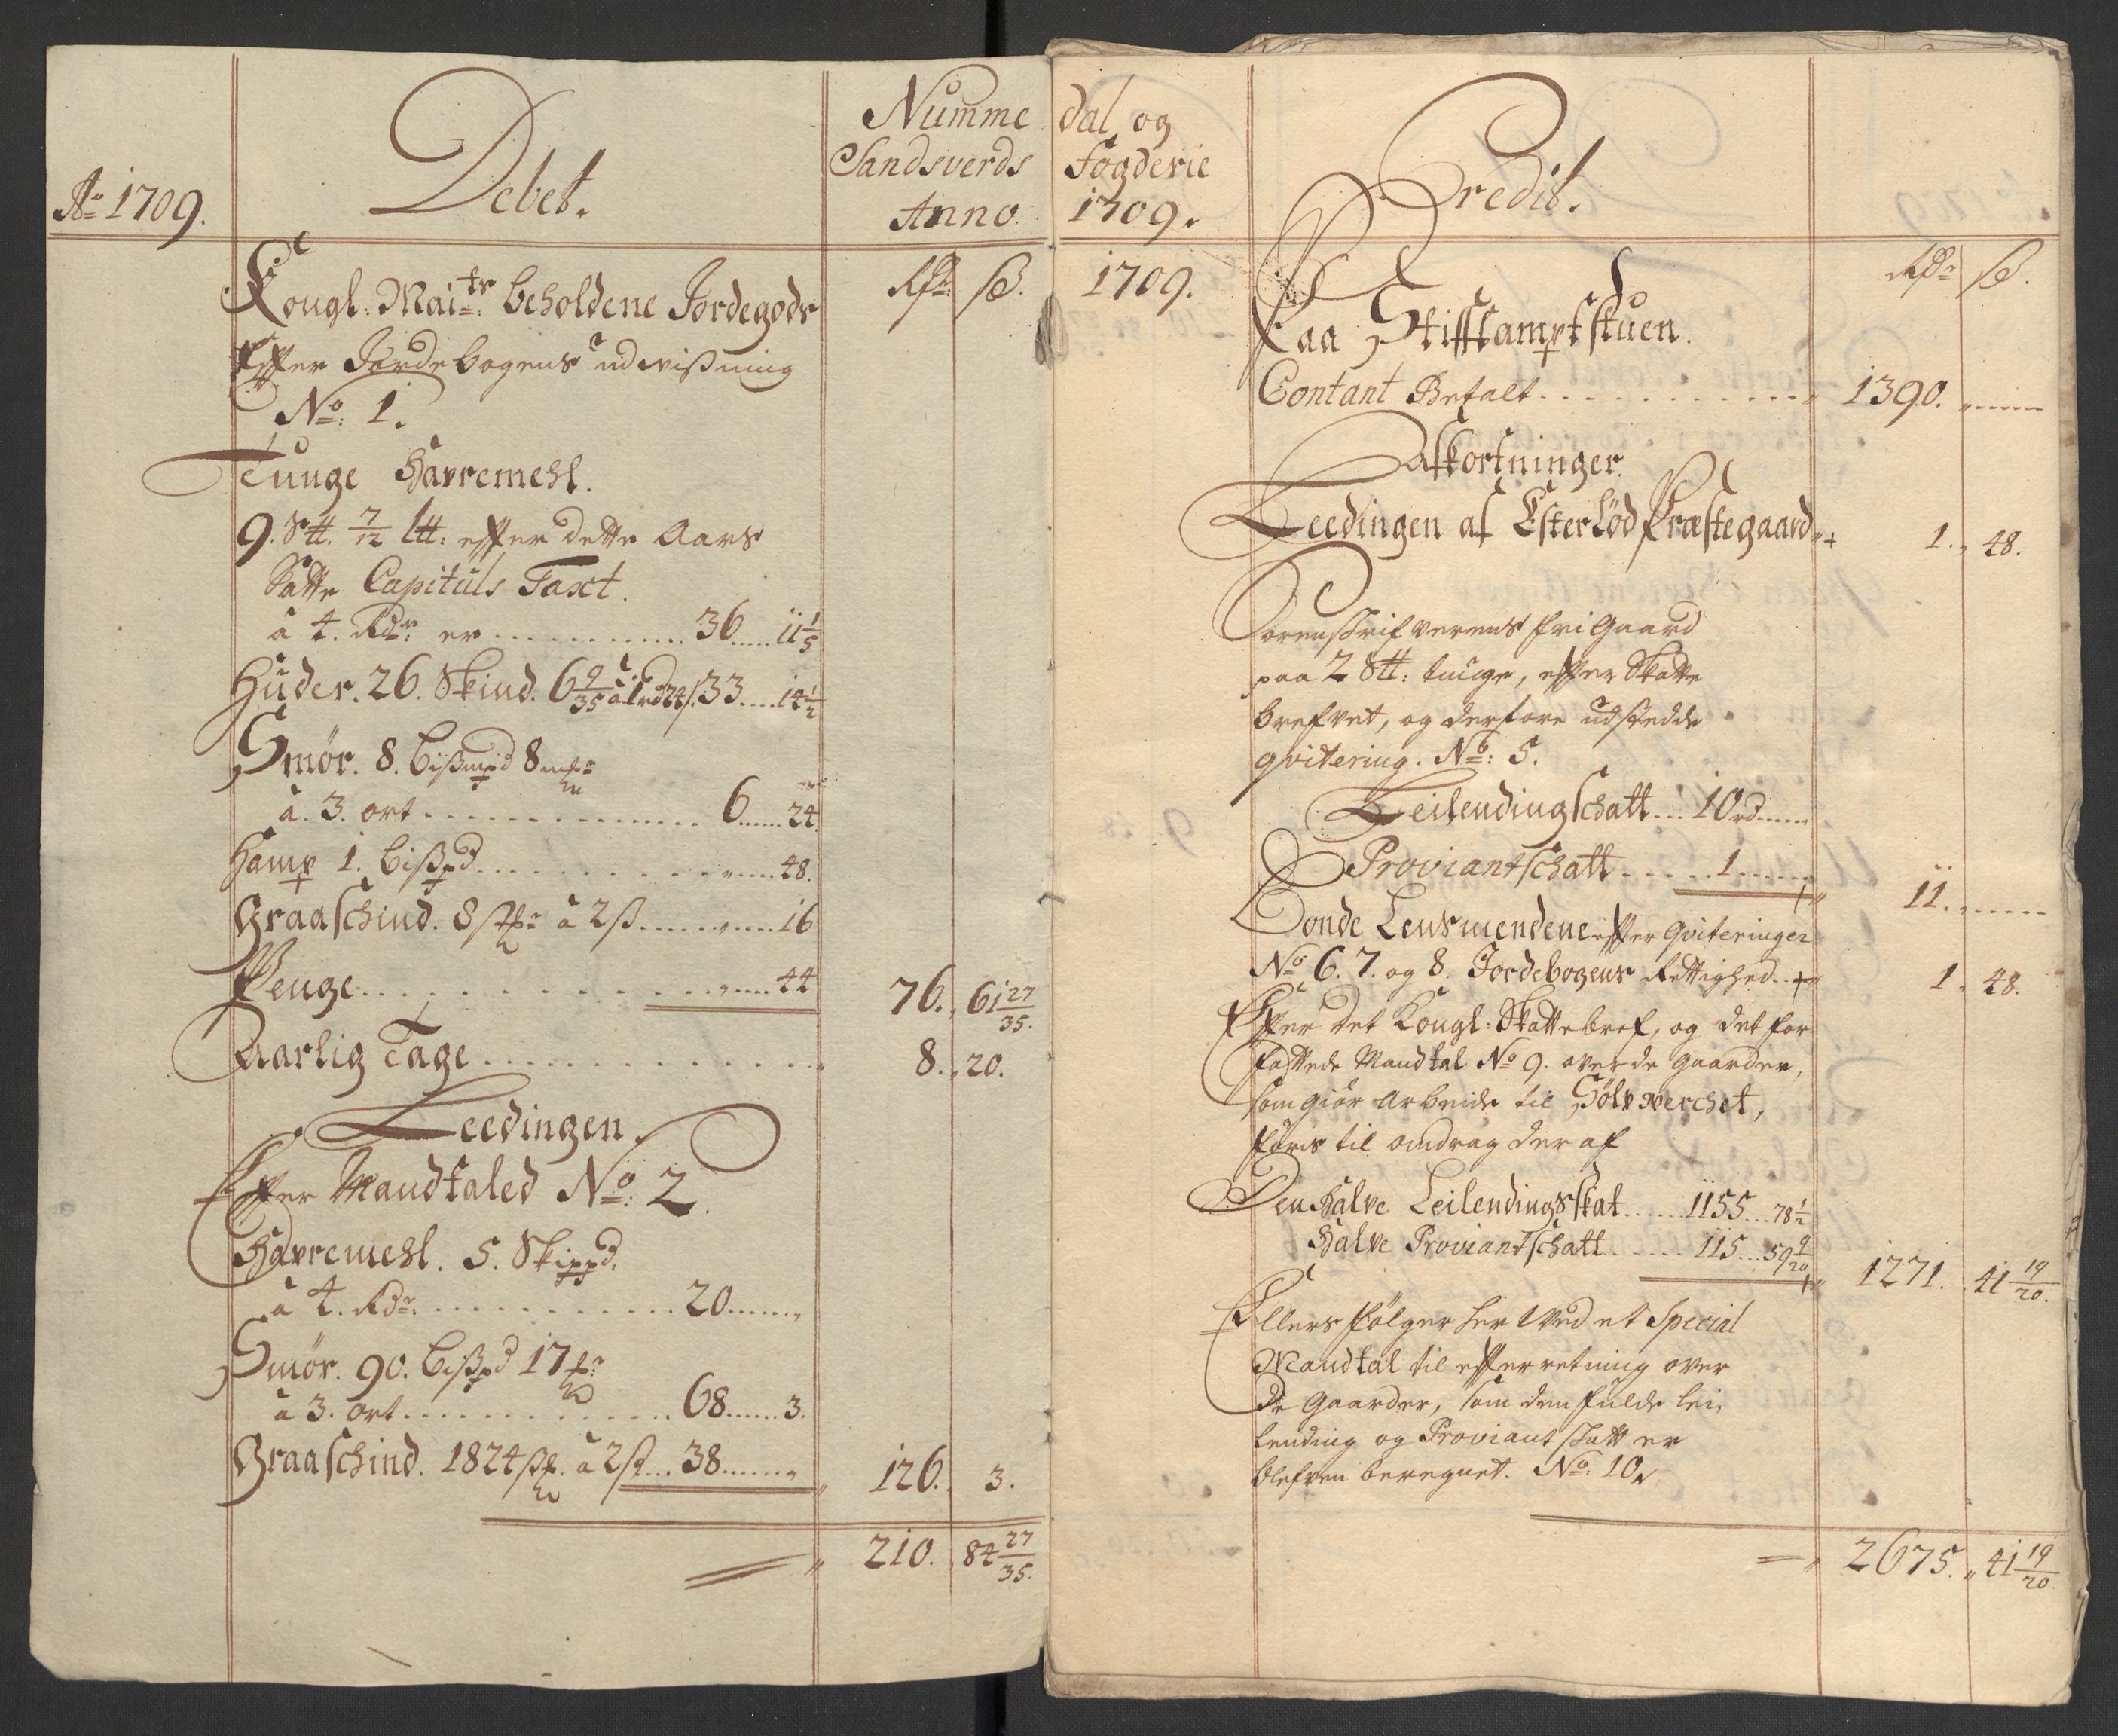 Ao 1709.
Debet.
Numme
Sandsverds
Anno
Kongl: Maitr: beholdene Jordegods
Rdr: ß.
Effter Jordebogens udvißning
No: 1.
Tunge Havremehl.
9. S℔. 7/12 L℔: effter dette Aars
Satte Capituls Taxt.
à 4. Rdr: er 36 11 1/5
Huder. 26. Skind. 6 9/35 à 1rd 24ß. 33 14 1/2
Smør. 8. bißmpd 8 mkr
à. 3. ort 6 24.
Hamp 1. bißpd 48.
Graaschind. 8 stkr à 2ß 16
Penge 44
76. 61 27/35.
Aarlig Tage
8. 20.
Leedingen.
Effter Mandtaled No: 2.
Havremehl. 5. Skippd.
à 4. Rdr: 20
Smør. 90. bißpd 17 mkr
à 3. ort 68 3.
Graaschind. 1824 stk. à 2ß 38
126. 3.
210. 84 27/35.
dal og
Fogderie
1709.
Credit.
1709.
Rdr ß.
Paa Stifftamptstuen.
Contant Betalt 1390.
Afkortninger.
Leedingen af Efterlød Præstegaard
1. 48.
Sorenskrifverens fri Gaard
paa 2 S℔: tunge, effter Skatte
brefvet, og derfore udstedde
qvitering. No: 5.
Leilendingschatt 10 rd
Proviantschatt 1
11.
Bonde Lensmendene effter qviteringer
No 6. 7. og 8. Jordebogens Rettighed
1. 48.
Effter det Kongl: Skattebref, og det for
fattede Mandtal No 9. over de gaarder,
som giør Arbeide til Sølvverchet,
føris til omdrag der af
Den halve Leilendingsskat 1155 78 1/2
Halve Proviantschatt 115 59 9/20
1271. 41 19/20.
Ellers følger her ved et Special
Mandtal til effterretning over
de Gaarder, som den fulde lei,
lending og Proviant skatt er
blefven beregnet. No: 10.
2675. 41 19/20.